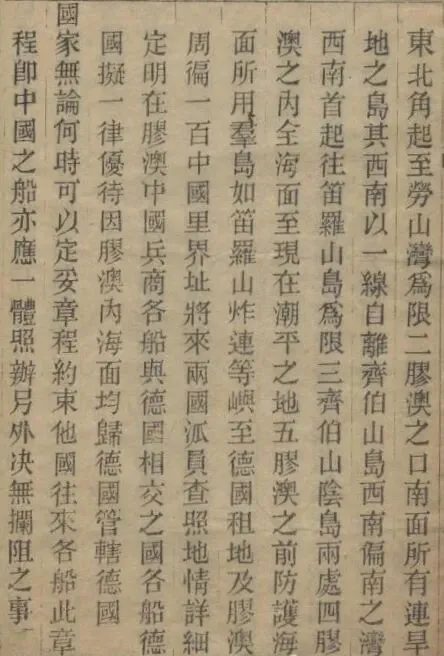 東北角起至勞山灣爲限二膠澳之口南面所有連旱
地之島其西南以一線自離齊伯山島西南偏南之灣
西南首起往笛羅山島爲限三齊伯山陰島兩處四膠
澳之內全海面至現在潮平之地五膠澳之前防護海
面所用羣島如笛羅山炸連等嶼至德國租地及膠澳
周徧一百中國里界址將來兩國派員查照地情詳細
定明在膠澳中國兵商各船與德國相交之國各船德
國擬一律優待因膠澳內海面均歸德國管轄德國
國家無論何時可以定妥章程約束他國往來各船此章
程卽中國之船亦應一體照辦另外决無攔阻之事